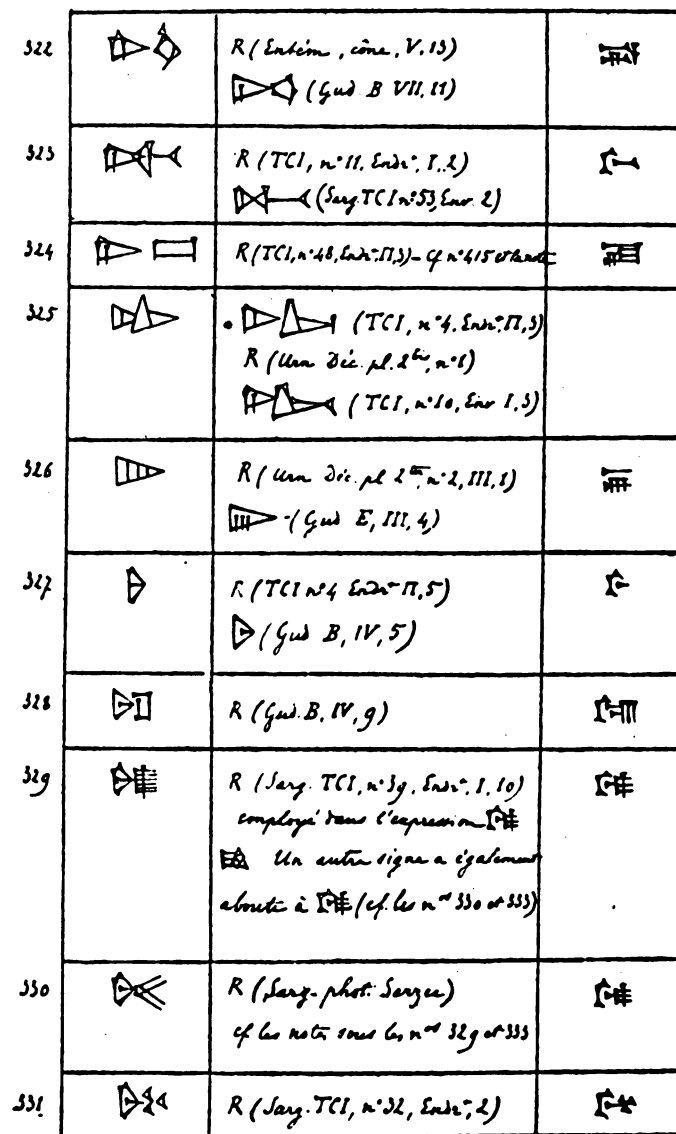 322 R (Entém, cône, V, 13)
(Gud B VII, 11)
323 R (TCI, n° 11, Endrt, I, 2)
(Sarg. TCI n° 53, Env. 2)
324 R (TCI, n° 48, Endrt, II, 3) - cf n° 415 et la note
325 (TCI, n° 4, Endrt, II, 3)
R (Urn Déc. pl. 2bis, n° 1)
(TCI, n° 10, Env I, 3)
326 R (Urn Déc. pl 2ter, n° 2, III, 1)
(Gud E, III, 4)
327 R (TCI n° 4 Endrt II, 5)
(Gud B, IV, 5)
328 R (Gud. B, IV, 9)
329 R (Sarg. TCI, n° 39, Endrt, I, 10)
employé dans l'expression
Un autre signe a également
abouti à (cf. les nos 330 et 333)
330 R (Sarg. phot. Sarzec)
cf les notes sous les nos 329 et 333
331 R (Sarg. TCI, n° 32, Endrt, 2)